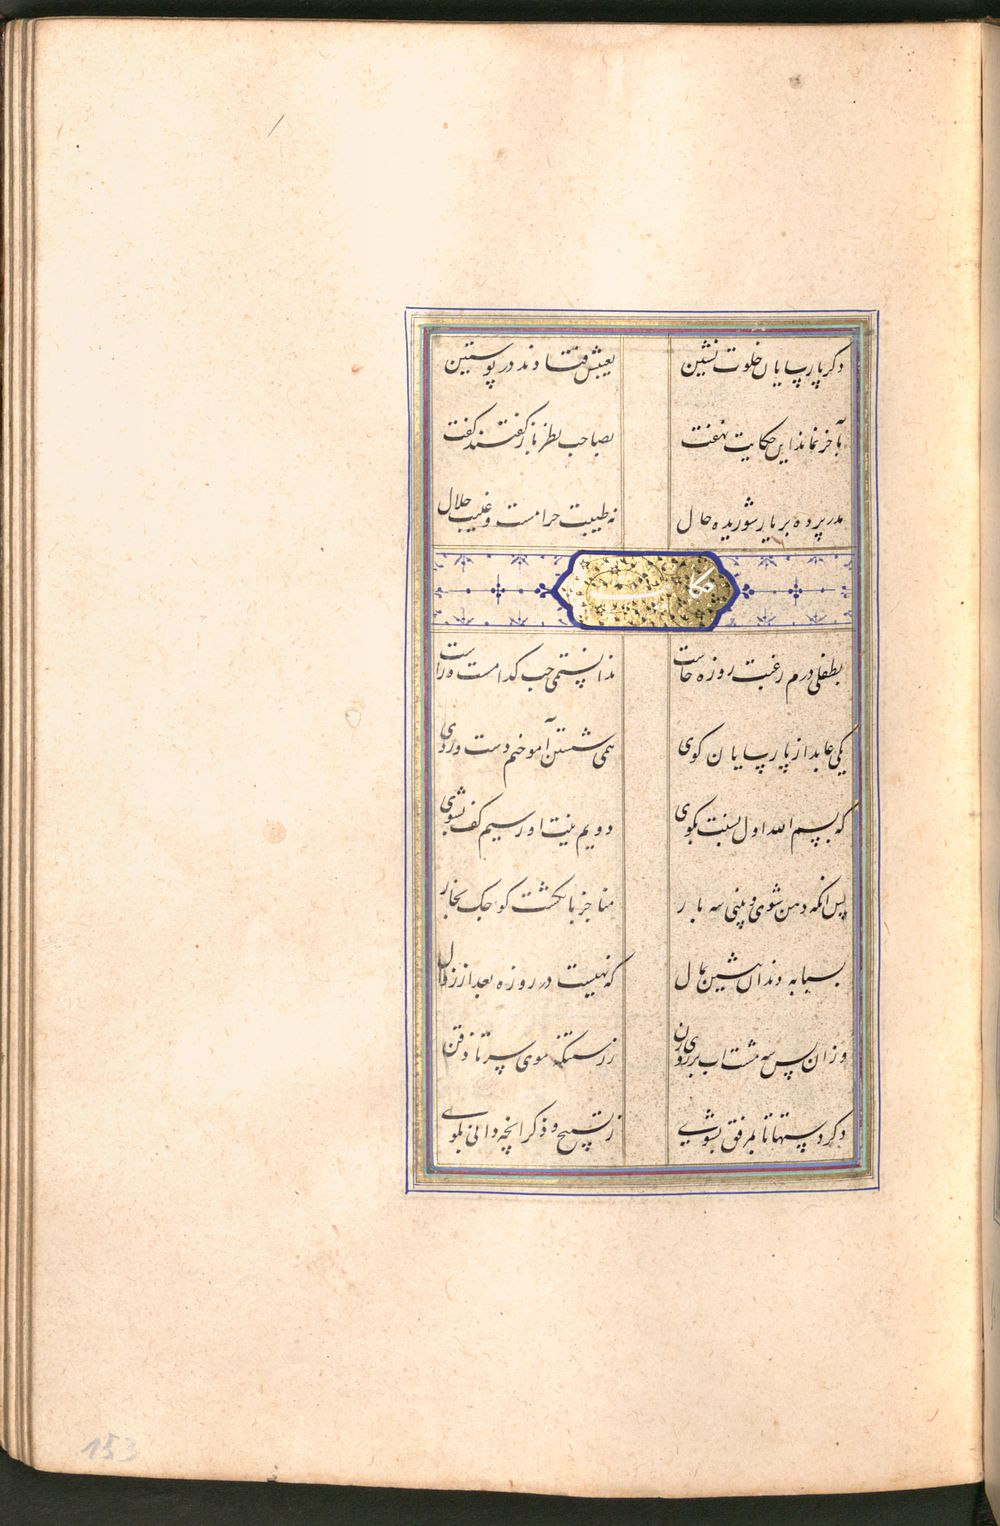 دکر پارسایان خلوت نشین بعیبش فتادند در پوستین
بآخر نماند این حکایت نهفت بصاحب نظر باز گفتند کفت
مدر پرده بر یار شوریده حال نه طیبت حرامست و غیبت حلال
حکایت
بطفلی درم رغبت روزه خاست ندانستمی چپ کدامست و راست
یکی عابد از پارسایان کوی همی شستن آموختم دست و روی
که بسم الله اول بسنت بکوی دویم نیت اور سیم کف بشوی
پس آنکه دهن شوی و بینی سه بار مناخر بانکشت کوچک بخار
بسبابه دندان پیشین بمال که نهیست در روزه بعد از زوال
وزان پس سه مشت اب بر روی زن ز رستنکه موی سر تا ذقن
دکر دستها تا بمرفق بشوی ز تسبیح و ذکر انچه دانی بکوی
153